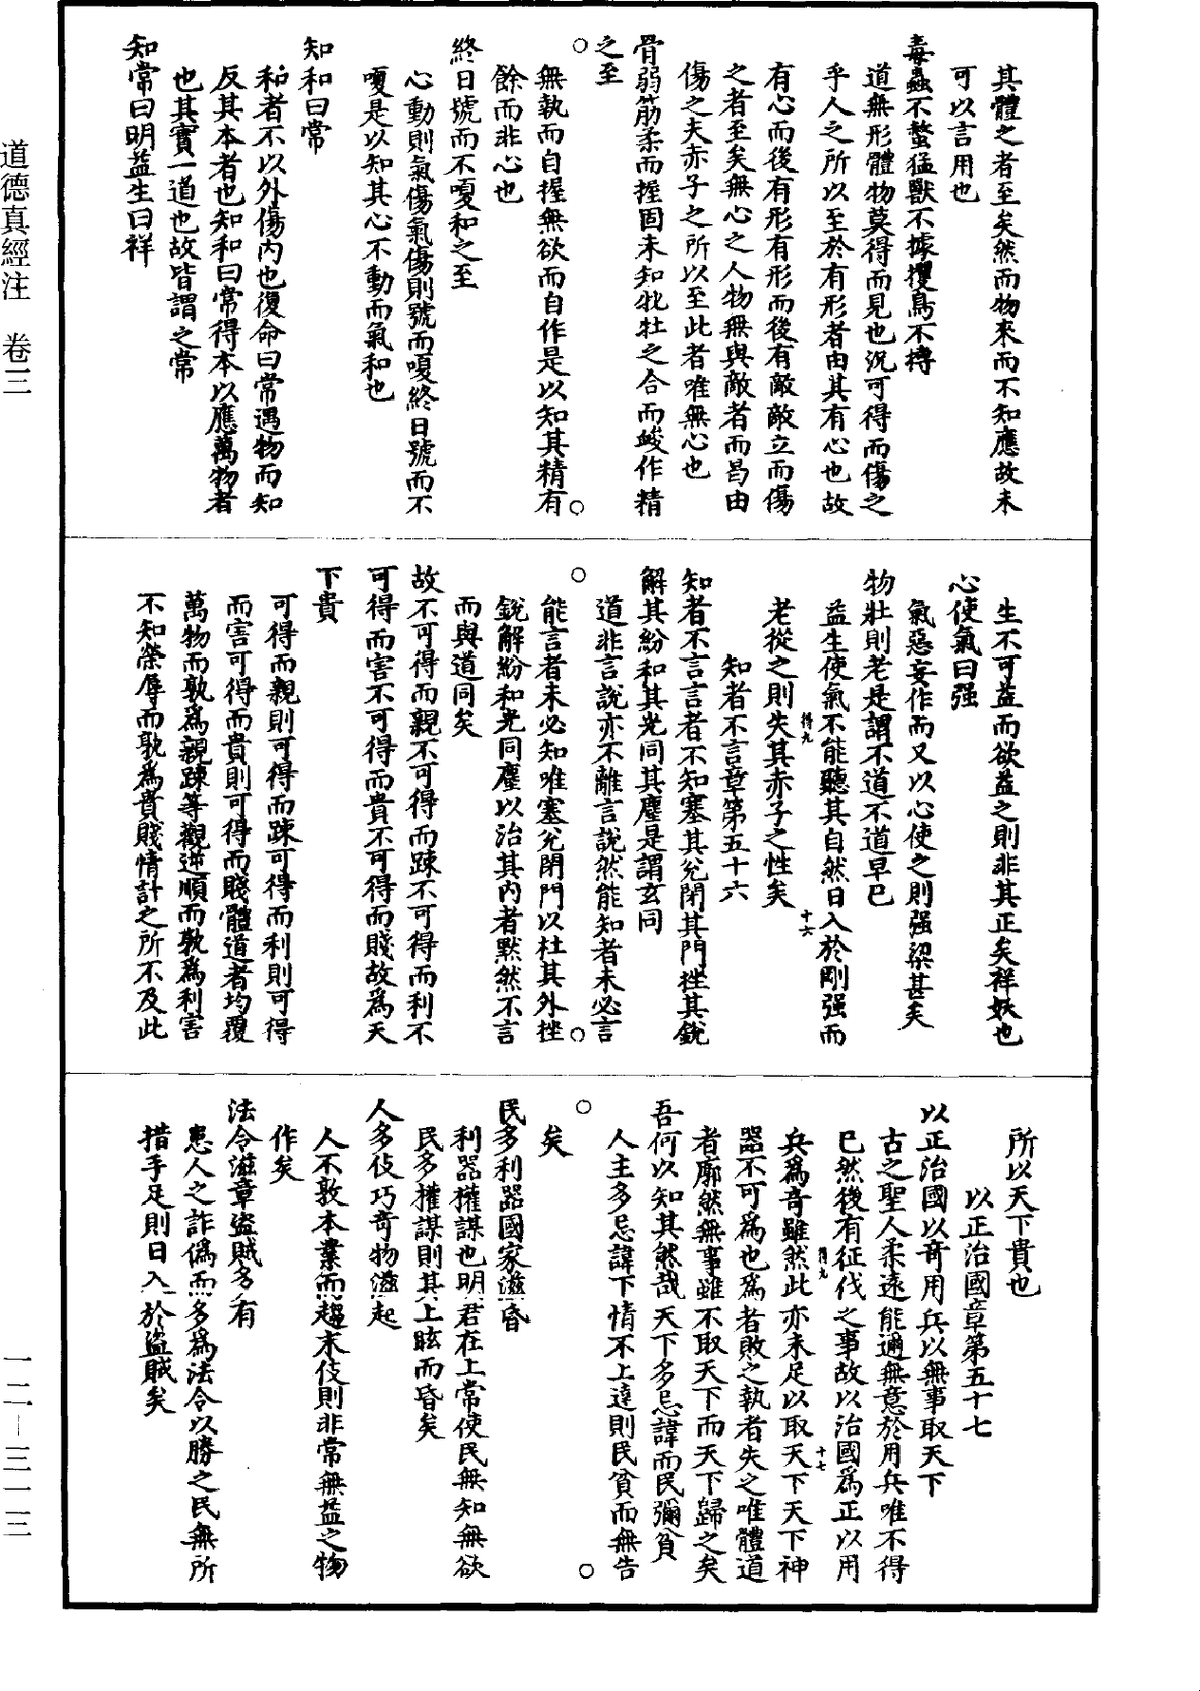 道德真經注　卷三
其體之者至矣然而物來而不知應故未
可以言用也
毒蟲不螫猛獸不據攫鳥不搏
道無形體物莫得而見也況可得而傷之
乎人之所以至於有形者由其有心也故
有心而後有形有形而後有敵敵立而傷
之者至矣無心之人物無與敵者而曷由
傷之夫赤子之所以至此者唯無心也
骨弱筋柔而握固未知牝牡之合而峻作精
之至
無執而自握無欲而自作是以知其精有
餘而非心也
終日號而不嗄和之至
心動則氣傷氣傷則號而嗄終日號而不
嗄是以知其心不動而氣和也
知和曰常
和者不以外傷內也復命曰常遇物而知
反其本者也知和曰常得本以應萬物者
也其實一道也故皆謂之常
知常曰明益生曰祥
生不可益而欲益之則非其正矣祥妖也
心使氣曰强
氣惡妄作而又以心使之則强梁甚矣
物壯則老是謂不道不道早已
益生使氣不能聽其自然日入於剛强而
老從之則失其赤子之性矣
得九
十六
知者不言章第五十六
知者不言言者不知塞其兌閉其門挫其銳
解其紛和其光同其塵是謂玄同
道非言說亦不離言說然能知者未必言
能言者未必知唯塞兌閉門以杜其外挫
銳解紛和光同塵以治其內者默然不言
而與道同矣
故不可得而親不可得而踈不可得而利不
可得而害不可得而貴不可得而賤故為天
下貴
可得而親則可得而踈可得而利則可得
而害可得而貴則可得而賤體道者均覆
萬物而孰為親踈等觀逆順而孰為利害
不知榮辱而孰為貴賤情計之所不及此
所以天下貴也
以正治國章第五十七
以正治國以奇用兵以無事取天下
古之聖人柔遠能邇無意於用兵唯不得
已然後有征伐之事故以治國為正以用
兵為奇雖然此亦未足以取天下天下神
得九
十七
器不可為也為者敗之執者失之唯體道
者廓然無事雖不取天下而天下歸之矣
吾何以知其然哉天下多忌諱而民彌貧
人主多忌諱下情不上達則民貧而無告
矣
民多利器國家滋昏
利器權謀也明君在上常使民無知無欲
民多權謀則其上眩而昏矣
人多伎巧奇物滋起
人不敦本業而趨末伎則非常無益之物
作矣
法令滋章盜賊多有
患人之詐偽而多為法令以勝之民無所
措手足則日入於盜賊矣
一二—三一三